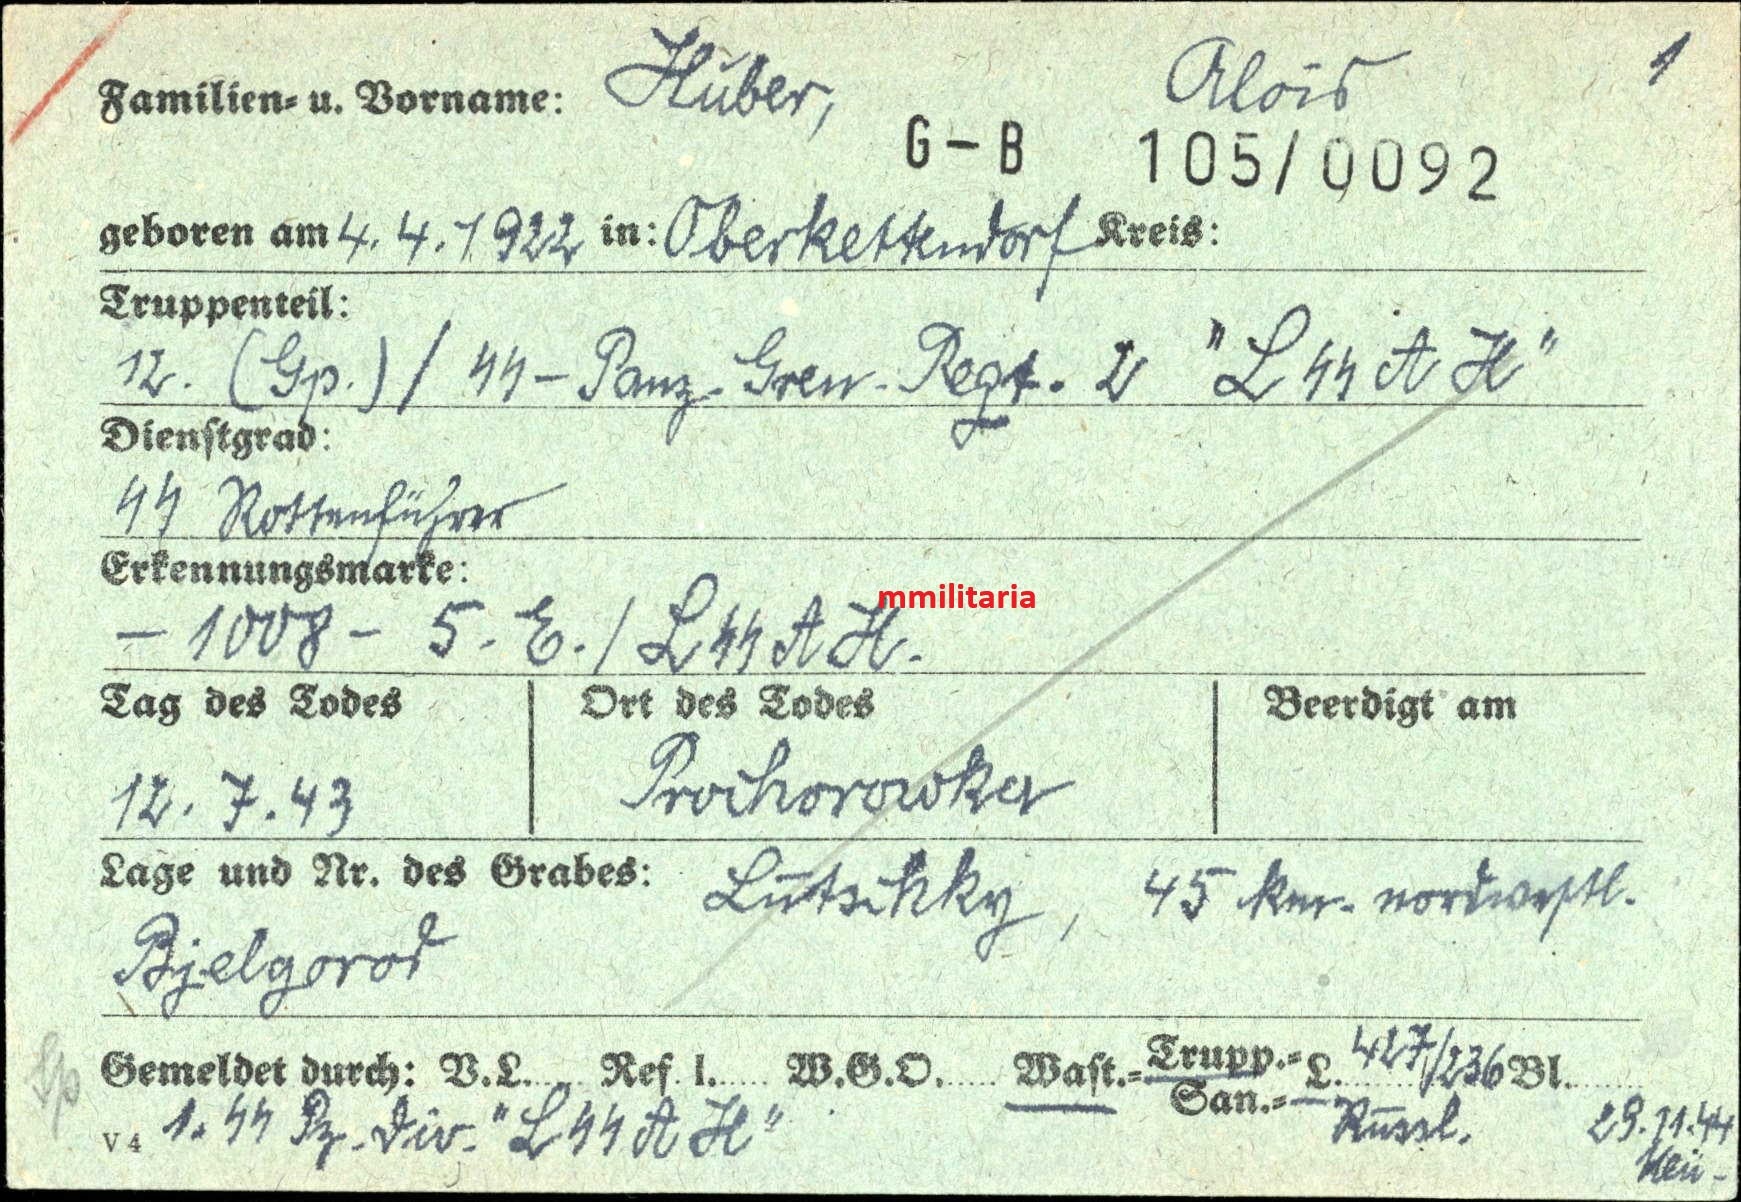 Familien- u. Vorname: Huber, Alois 1
G-B 105/0092
geboren am 4.4.1922 in: Oberkettendorf Kreis:
Truppenteil:
12. (Gp.) / SS-Panz.-Gren.-Regt. 2 "LSSAH"
Dienstgrad:
SS Rottenführer
Erkennungsmarke:
mmilitaria
- 1008 - 5. E. / LSSAH.
Tag des Todes Ort des Todes Beerdigt am
12.7.43 Prochorowka
Lage und Nr. des Grabes: Lutschky, 45 km. nordwestl.
Bjelgorod
Gemeldet durch: V.L..... Ref I..... W.G.O..... Wast.- Trupp.- San.- L. 427/236 Bl.....
V 4 1. SS Pz. Div. "LSSAH" Russl. 29.11.44